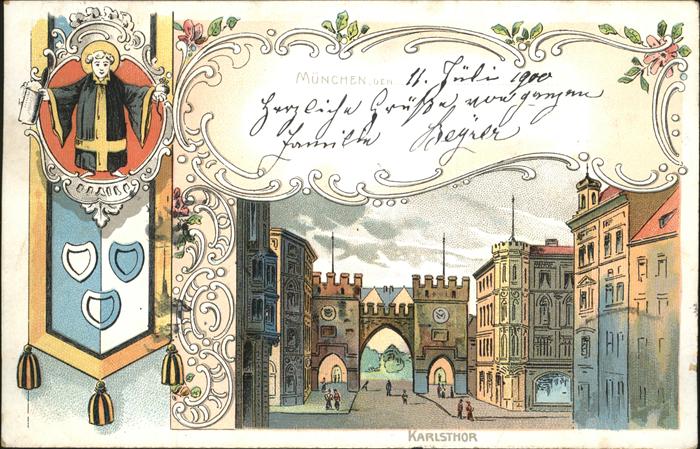 MÜNCHEN, DEN 11. Juli 1900
Herzliche Grüße von ganzen
Familie
KARLSTHOR